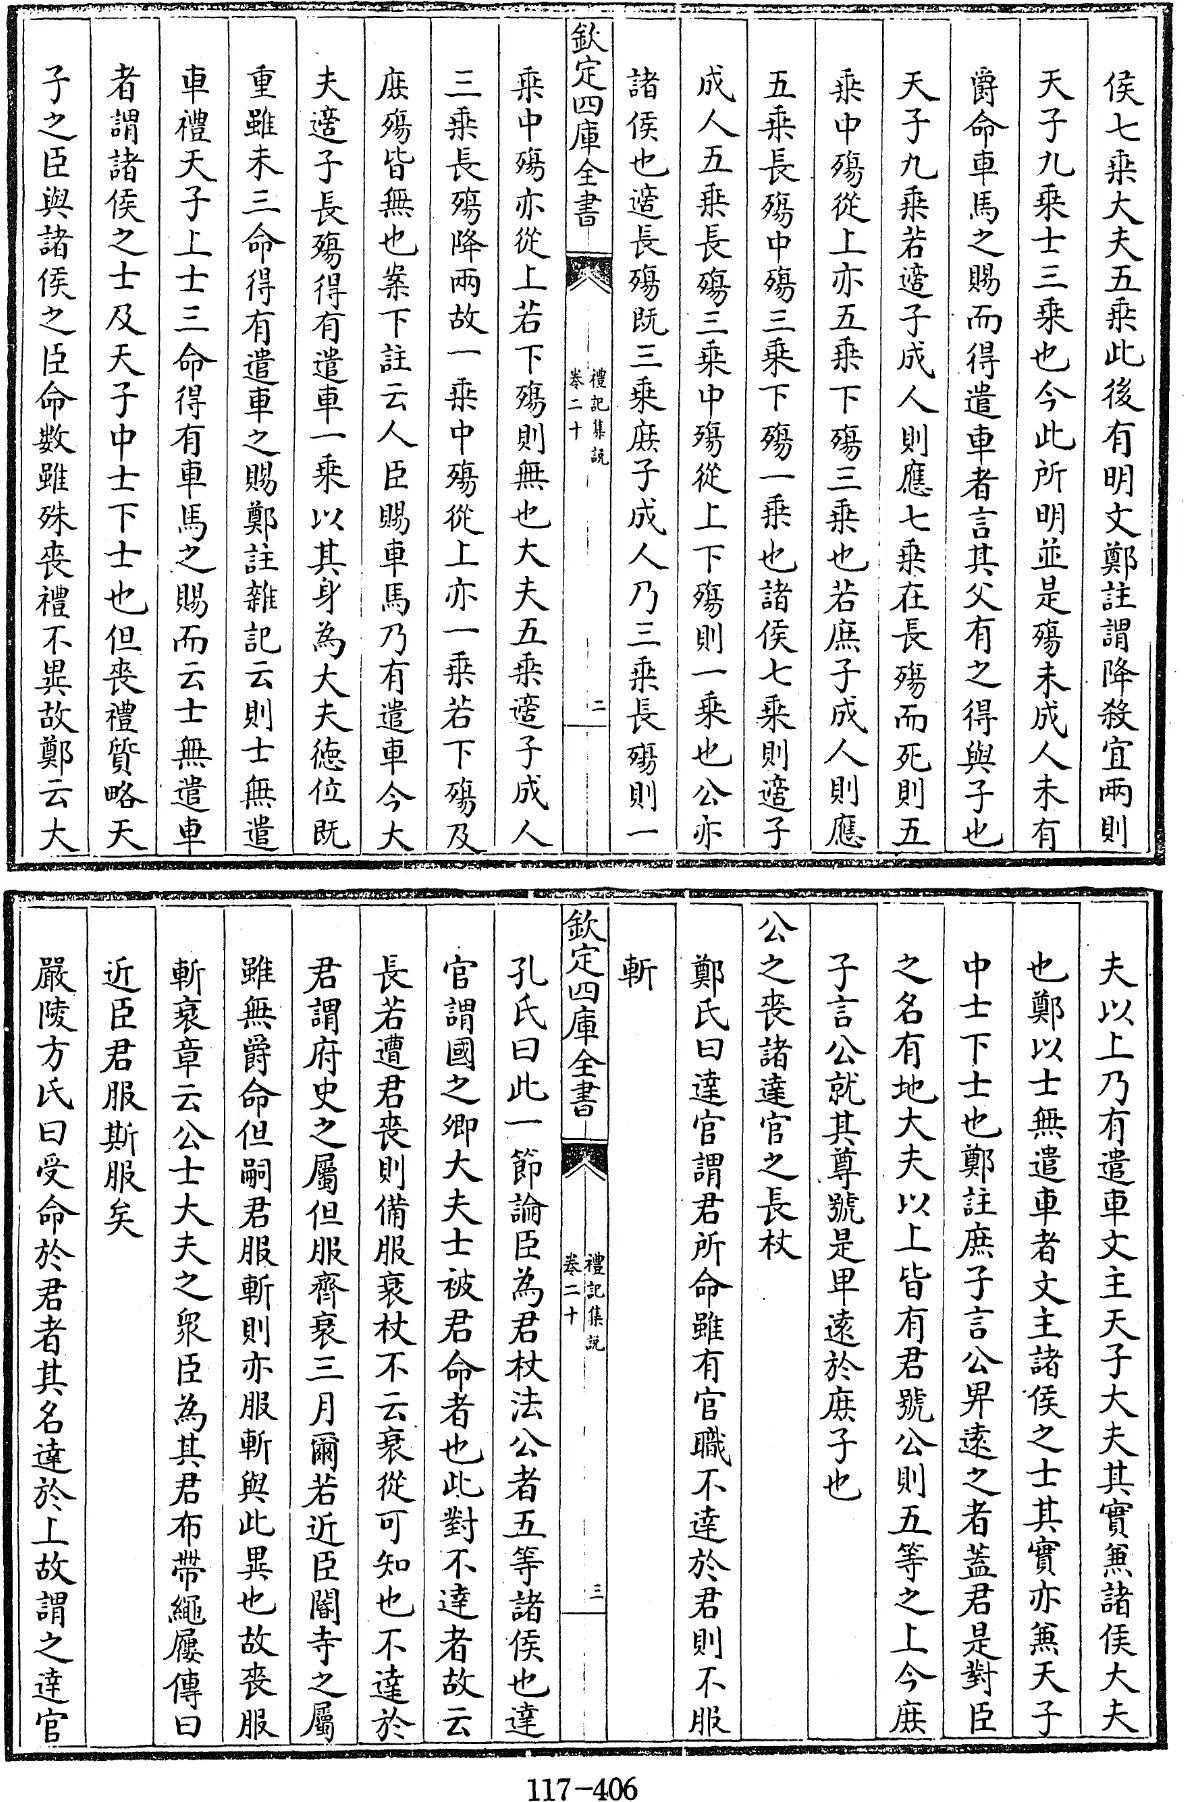 侯七乘大夫五乘此後有明文鄭註謂降殺宜兩則
天子九乘士三乘也今此所明並是殤未成人未有
爵命車馬之賜而得遣車者言其父有之得與子也
天子九乘若適子成人則應七乘在長殤而死則五
乘中殤從上亦五乘下殤三乘也若庶子成人則應
五乘長殤中殤三乘下殤一乘也諸侯七乘則適子
成人五乘長殤三乘中殤從上下殤則一乘也公亦
諸侯也適長殤既三乘庶子成人乃三乘長殤則一
欽定四庫全書
禮記集說
卷二十
二
乘中殤亦從上若下殤則無也大夫五乘適子成人
三乘長殤降兩故一乘中殤從上亦一乘若下殤及
庶殤皆無也案下註云人臣賜車馬乃有遣車今大
夫適子長殤得有遣車一乘以其身為大夫德位既
重雖未三命得有遣車之賜鄭註雜記云則士無遣
車禮天子上士三命得有車馬之賜而云士無遣車
者謂諸侯之士及天子中士下士也但喪禮質略天
子之臣與諸侯之臣命數雖殊喪禮不異故鄭云大
夫以上乃有遣車文主天子大夫其實兼諸侯大夫
也鄭以士無遣車者文主諸侯之士其實亦兼天子
中士下士也鄭註庶子言公卑遠之者蓋君是對臣
之名有地大夫以上皆有君號公則五等之上今庶
子言公就其尊號是卑遠於庶子也
公之喪諸達官之長杖
鄭氏曰達官謂君所命雖有官職不達於君則不服
斬
欽定四庫全書
禮記集說
卷二十
三
孔氏曰此一節論臣為君杖法公者五等諸侯也達
官謂國之卿大夫士被君命者也此對不達者故云
長若遭君喪則備服衰杖不云衰從可知也不達於
君謂府史之屬但服齊衰三月爾若近臣閽寺之屬
雖無爵命但嗣君服斬則亦服斬與此異也故喪服
斬衰章云公士大夫之衆臣為其君布帶繩屨傳曰
近臣君服斯服矣
嚴陵方氏曰受命於君者其名達於上故謂之達官
117-406